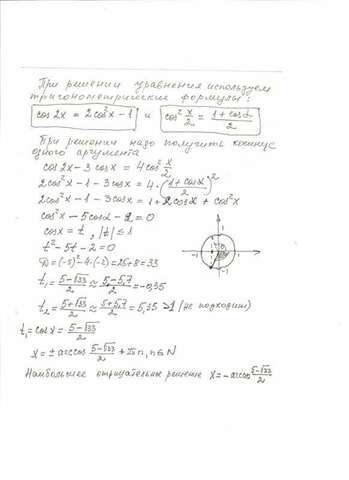 При решении уравнения используем
тригонометрические формулы:
cos 2x = 2cos²x - 1 и cos² x/2 = (1 + cos α)/2
При решении надо получить косинус
одного аргумента
cos 2x - 3 cos x = 4cos² x/2
2cos²x - 1 - 3cos x = 4·((1 + cos x)/2)²
2cos²x - 1 - 3cos x = 1 + 2cos x + cos²x
cos²x - 5cos x - 2 = 0
cos x = t, |t| ≤ 1
t² - 5t - 2 = 0
D = (-5)² - 4·(-2) = 25 + 8 = 33
t₁ = (5 - √33)/2 ≈ (5 - 5,7)/2 = -0,35
t₂ = (5 + √33)/2 ≈ (5 + 5,7)/2 = 5,35 > 1 (не подходит)
t₁ = cos x = (5 - √33)/2
x = ± arccos (5 - √33)/2 + 2πn, n ∈ N
Наибольшее отрицательное решение x = - arccos (5 - √33)/2
1
-1
1
-1